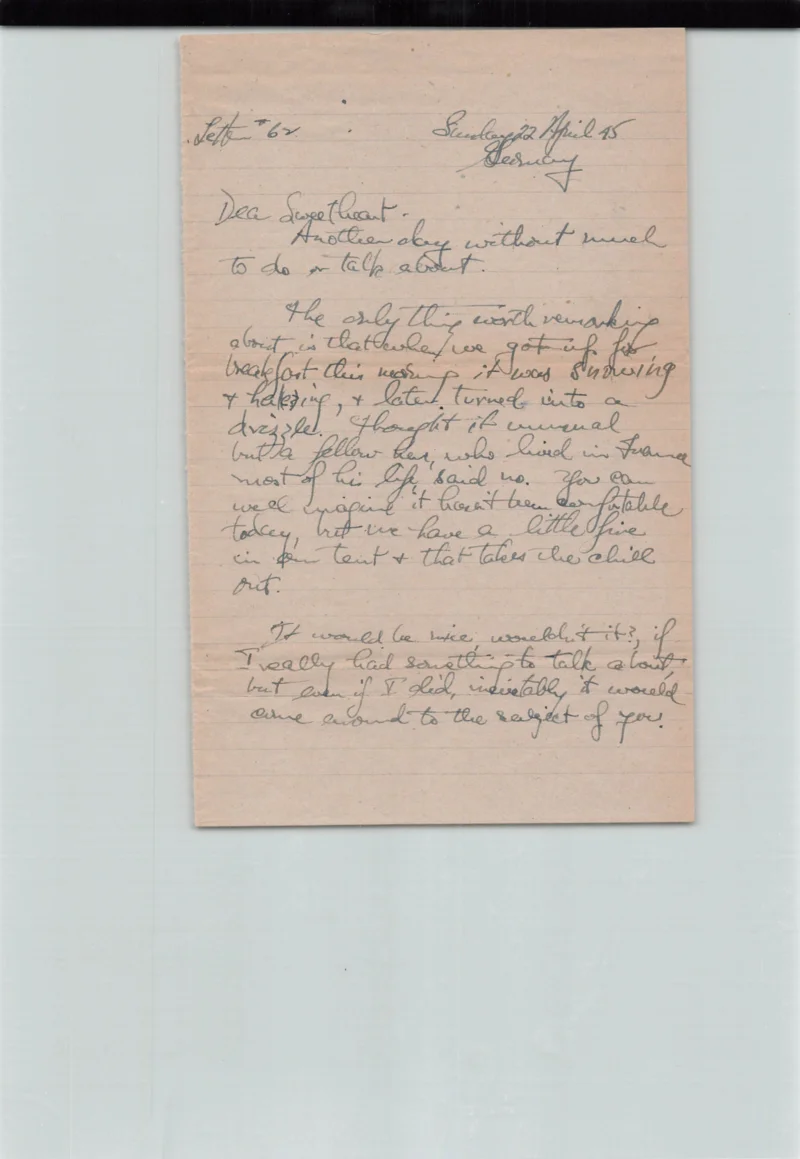 Letter # 62
Sunday 22 April 45
Germany
Dear Sweetheart.
Another day without much
to do or talk about.
The only thing worth remarking
about is that when we got up for
breakfast this morning it was snowing
& hailing, & later turned into a
drizzle. Thought it unusual
but a fellow here, who lived in France
most of his life, said no. You can
well imagine it hasn't been comfortable
today, but we have a little fire
in our tent & that takes the chill
out.
It would be nice, wouldn't it?, if
I really had something to talk about,
but even if I did, inevitably it would
come around to the subject of you.